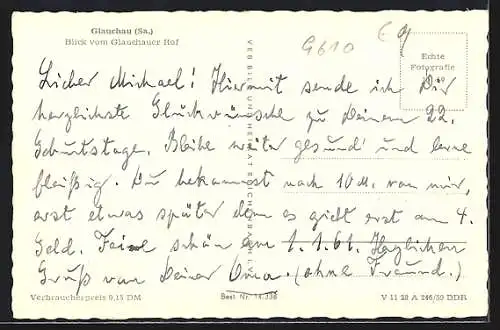 Glauchau (Sa.)
Blick vom Glauchauer Hof
G610
Echte
Fotografie
VEB BILD UND HEIMAT REICHENBACH I. V.
Lieber Michael! Hiermit sende ich Dir
herzlichste Glückwünsche zu Deinem 22.
Geburtstage. Bleibe weiter gesund und lerne
fleißig. Du bekommst noch 10 M. von mir,
erst etwas später denn es giebt erst am 4.
Geld. Feire schön am 1.1.61. Herzlichen
Gruß von Deiner Oma. (ohne Freund.)
Verbraucherpreis 0,15 DM
Best. Nr. 14/338
V 11 28 A 246/59 DDR